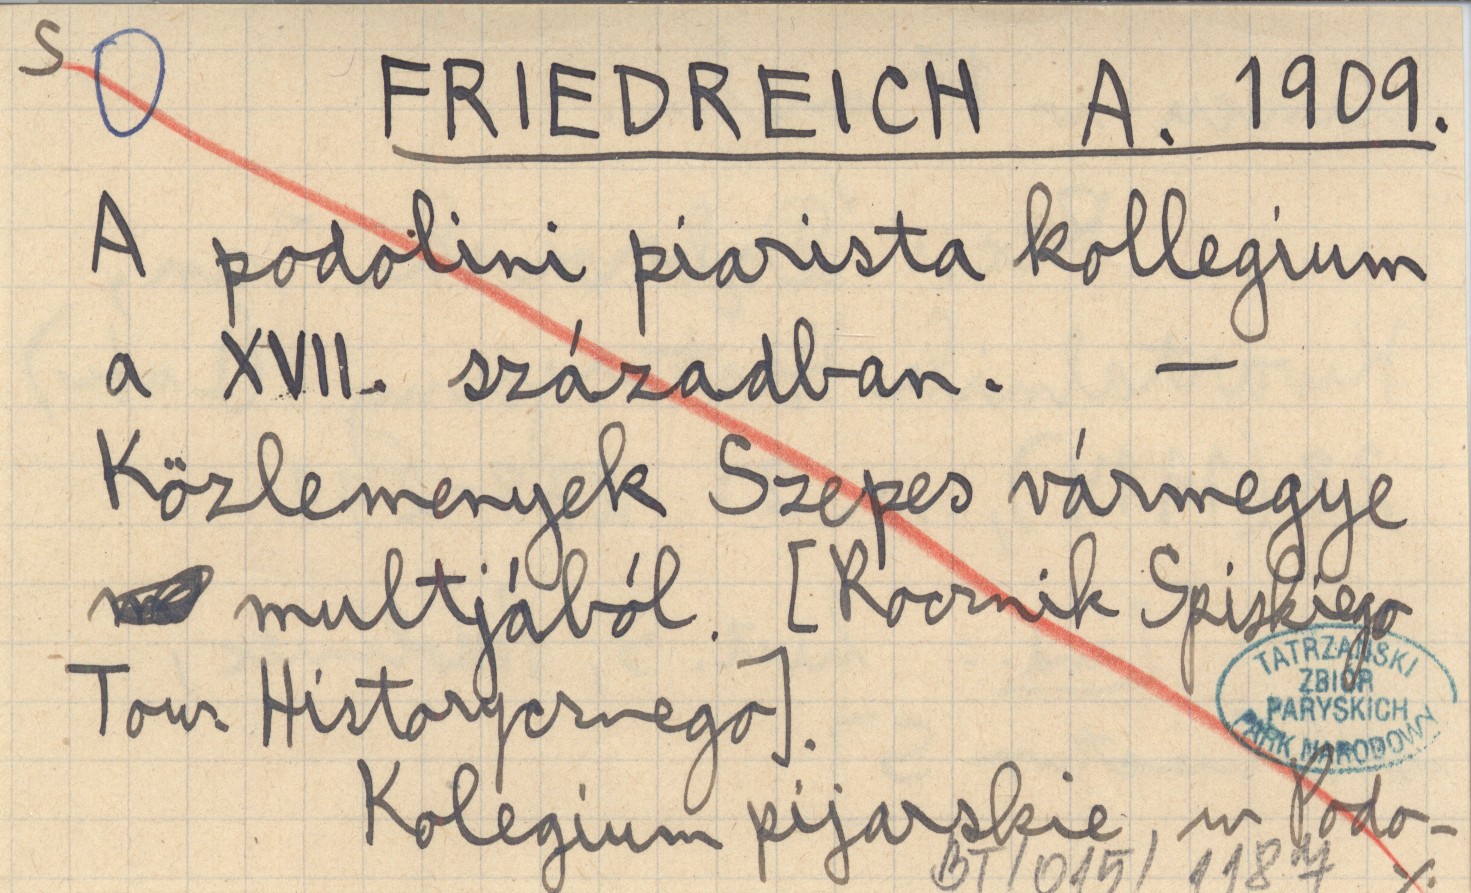 S
FRIEDREICH A. 1909.
A podolini piarista kollegium
a XVII. században. —
Közlemenyek Szepes vármegye
multjából. [Rocznik Spiskiego
Tow. Historycznego].
TATRZAŃSKI
ZBIÓR
PARYSKICH
PARK NARODOWY
Kolegium pijarskie w Podo-
BT/015/1187